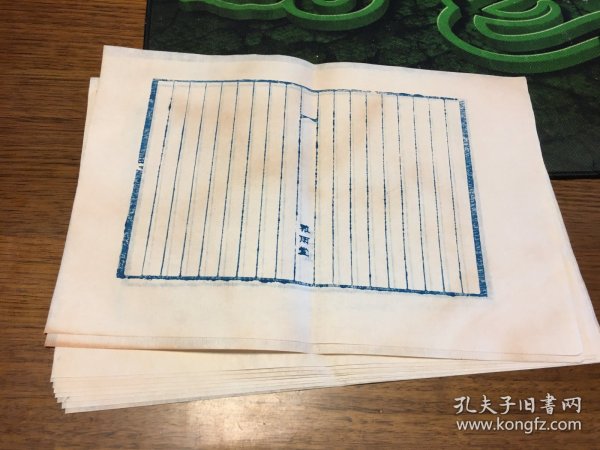 雅雨堂
孔夫子旧書网
www.kongfz.com